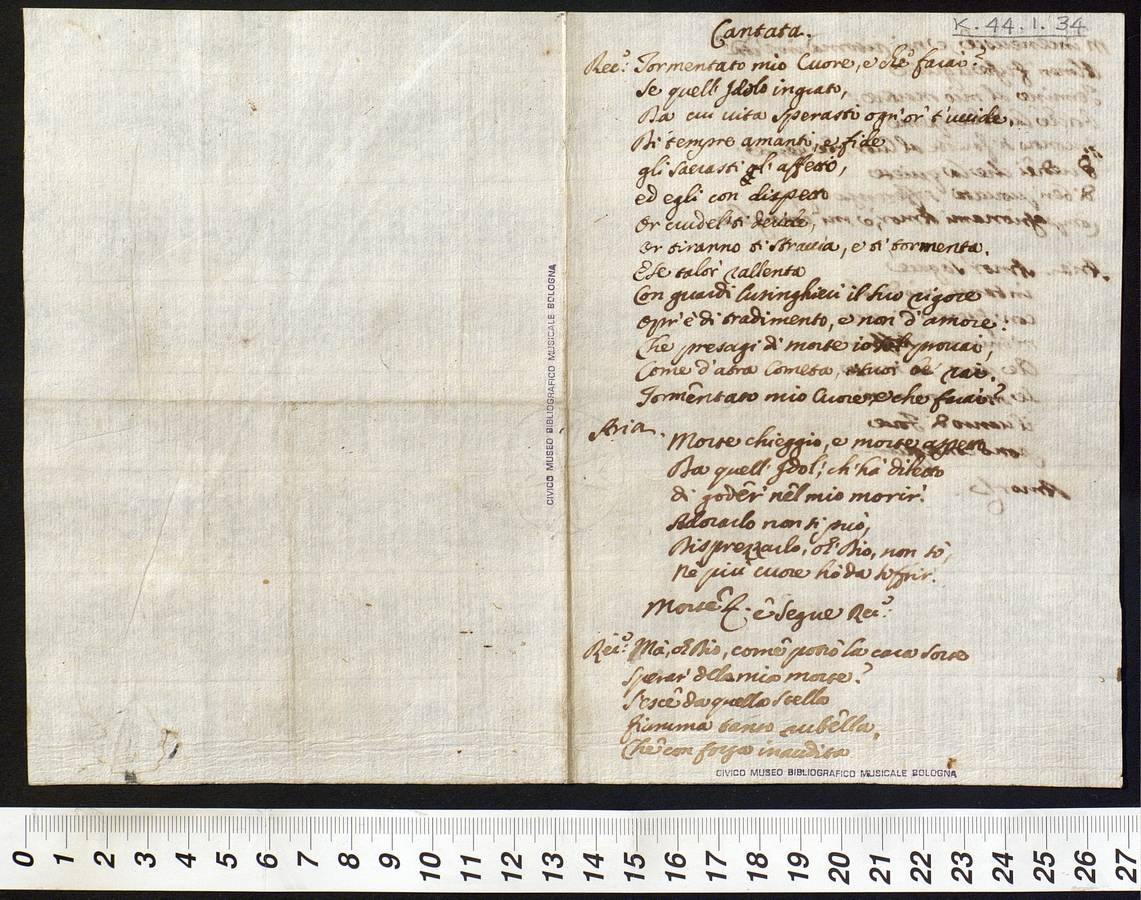 K. 44. 1. 34
Cantata.
Rec.º: Tormentato mio Cuore, e chè farai?
Se quell' Idolo ingrato,
Da cui vita sperasti ogn'or' t'uccide,
Di tempre amanti, e fide
gli sacrasti gl' affetti,
ed egli con dispetto
Or crudel' ti deride,
Or tiranno ti straccia, e ti tormenta.
E se talor' rallenta
Con guardi lusinghieri il suo rigore
Opr' è di tradimento, e non d'amore:
Che presagi di morte io provai,
Come d'atra Cometa, i rai.
Tormentato mio Cuore e che farai?
Aria.
Morte chieggio, e morte aspetto
Da quell' Idol', ch'hà diletto
di godèr' nèl mio morir'.
Adorarlo non si può,
Disprezzarlo, oh Dio, non sò,
Nè più cuore hò da soffrir.
Morte &. e Segue Rec.º:
Rec.º: Mà, oh Dio, come potrò la cara sorte
sperar' della mia morte?
S'esce da quella stella
fiamma tanto rubella,
Che con forza inaudita
CIVICO MUSEO BIBLIOGRAFICO MUSICALE BOLOGNA
CIVICO MUSEO BIBLIOGRAFICO MUSICALE BOLOGNA
0 1 2 3 4 5 6 7 8 9 10 11 12 13 14 15 16 17 18 19 20 21 22 23 24 25 26 27